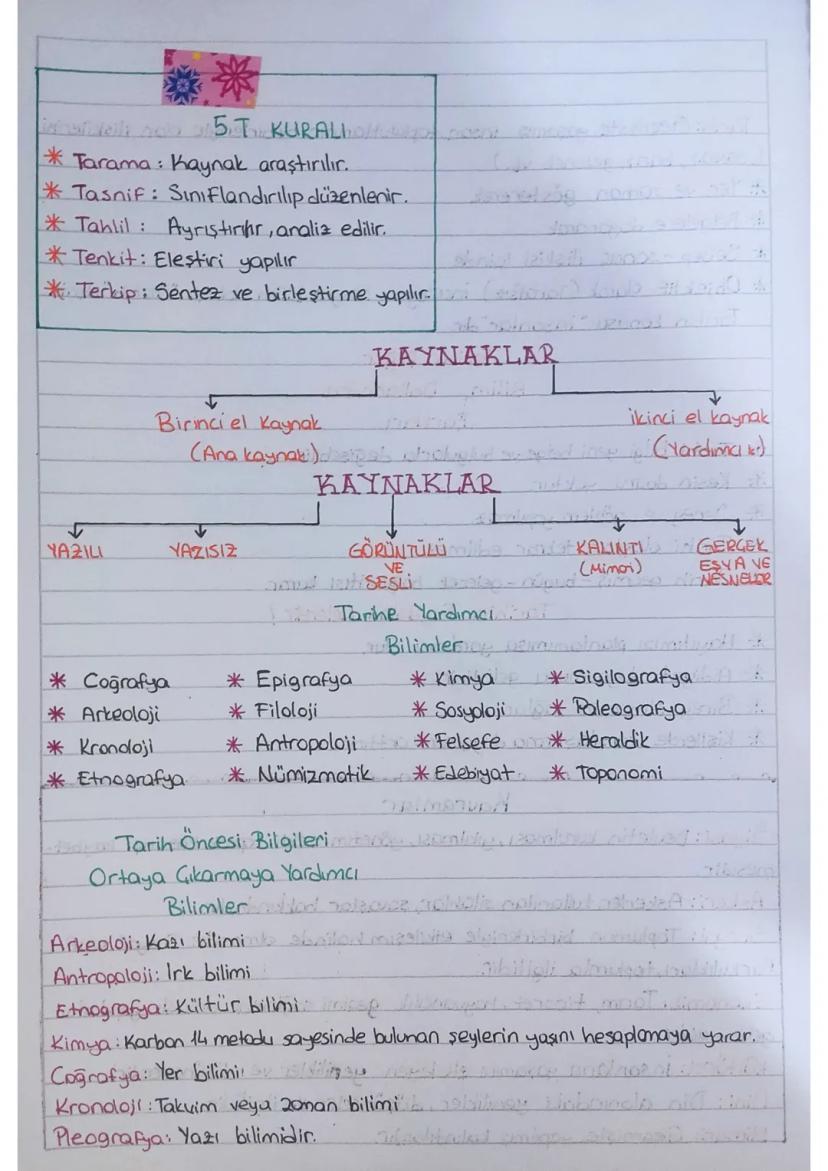 5.T KURALI
* Tarama: Kaynak araştırılır.
* Tasnif: Sınıflandırılıp düzenlenir.
* Tahlil: Ayrıştırılır, analiz edilir.
* Tenkit: Eleştiri yapılır
* Terkip: Sentez ve birleştirme yapılır.
KAYNAKLAR
Birinci el kaynak
(Ana kaynak)
ikinci el kaynak
(Yardımcı k.)
KAYNAKLAR
YAZILI
YAZISIZ
GÖRÜNTÜLÜ
VE
SESLİ
KALINTI
(Mimari)
GERÇEK
EŞYA VE
NESNELER
Tarihe Yardımcı
Bilimler
* Coğrafya * Epigrafya * Kimya * Sigilografya
* Arkeoloji * Filoloji * Sosyoloji * Paleografya
* Kronoloji * Antropoloji * Felsefe * Heraldik
* Etnografya * Nümizmatik * Edebiyat * Toponomi
Tarih Öncesi Bilgileri
Ortaya Çıkarmaya Yardımcı
Bilimler
Arkeoloji: Kazı bilimi
Antropoloji: Irk bilimi
Etnografya: Kültür bilimi
Kimya: Karbon 14 metodu sayesinde bulunan şeylerin yaşını hesaplamaya yarar.
Coğrafya: Yer bilimi
Kronoloji: Takvim veya zaman bilimi
Pleografya: Yazı bilimidir.